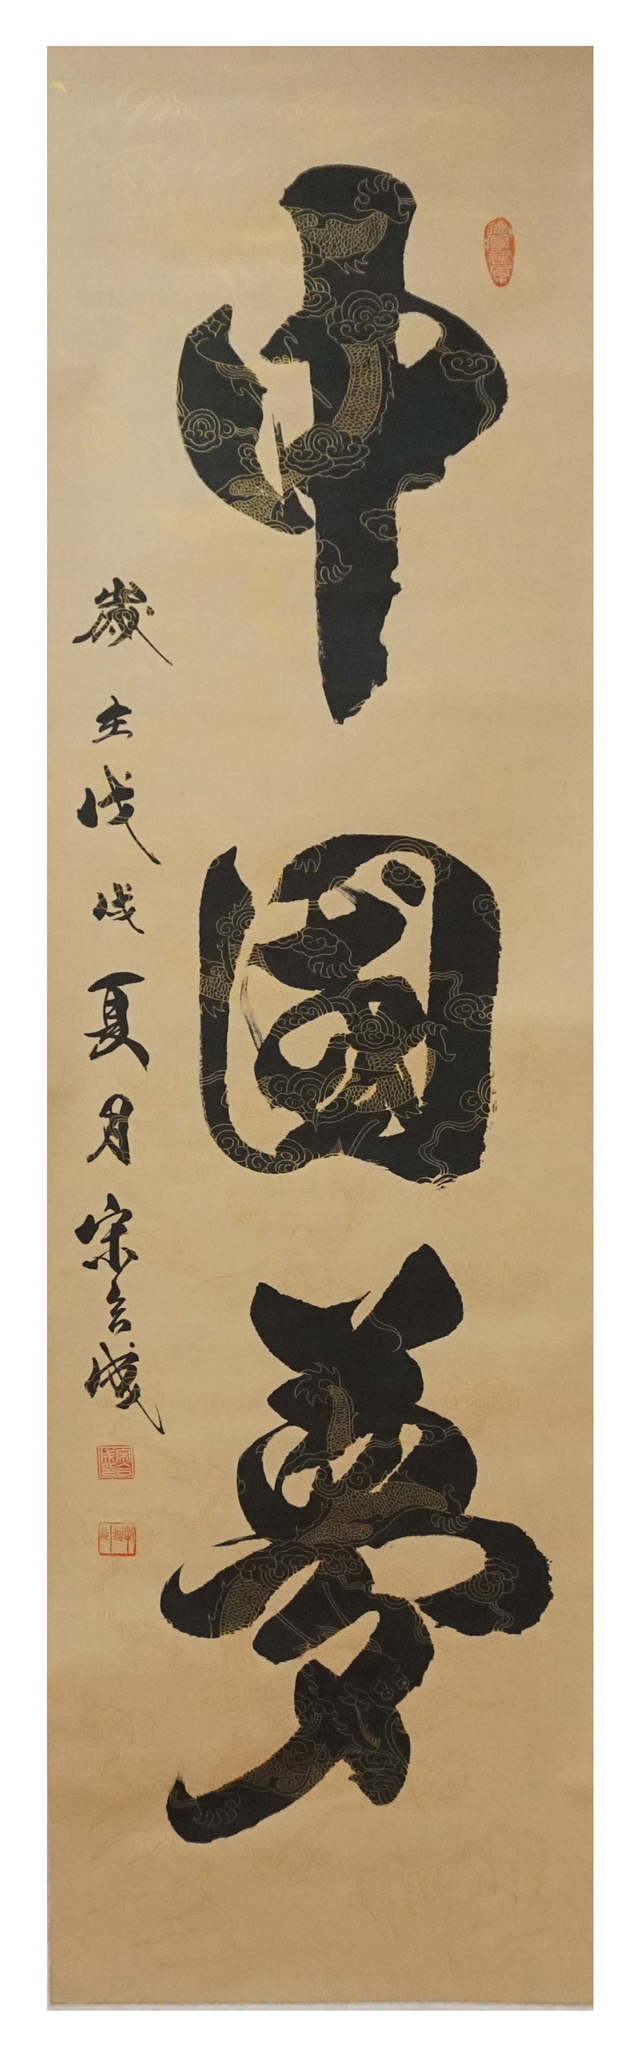 中國夢
歲在戊戌夏月宋